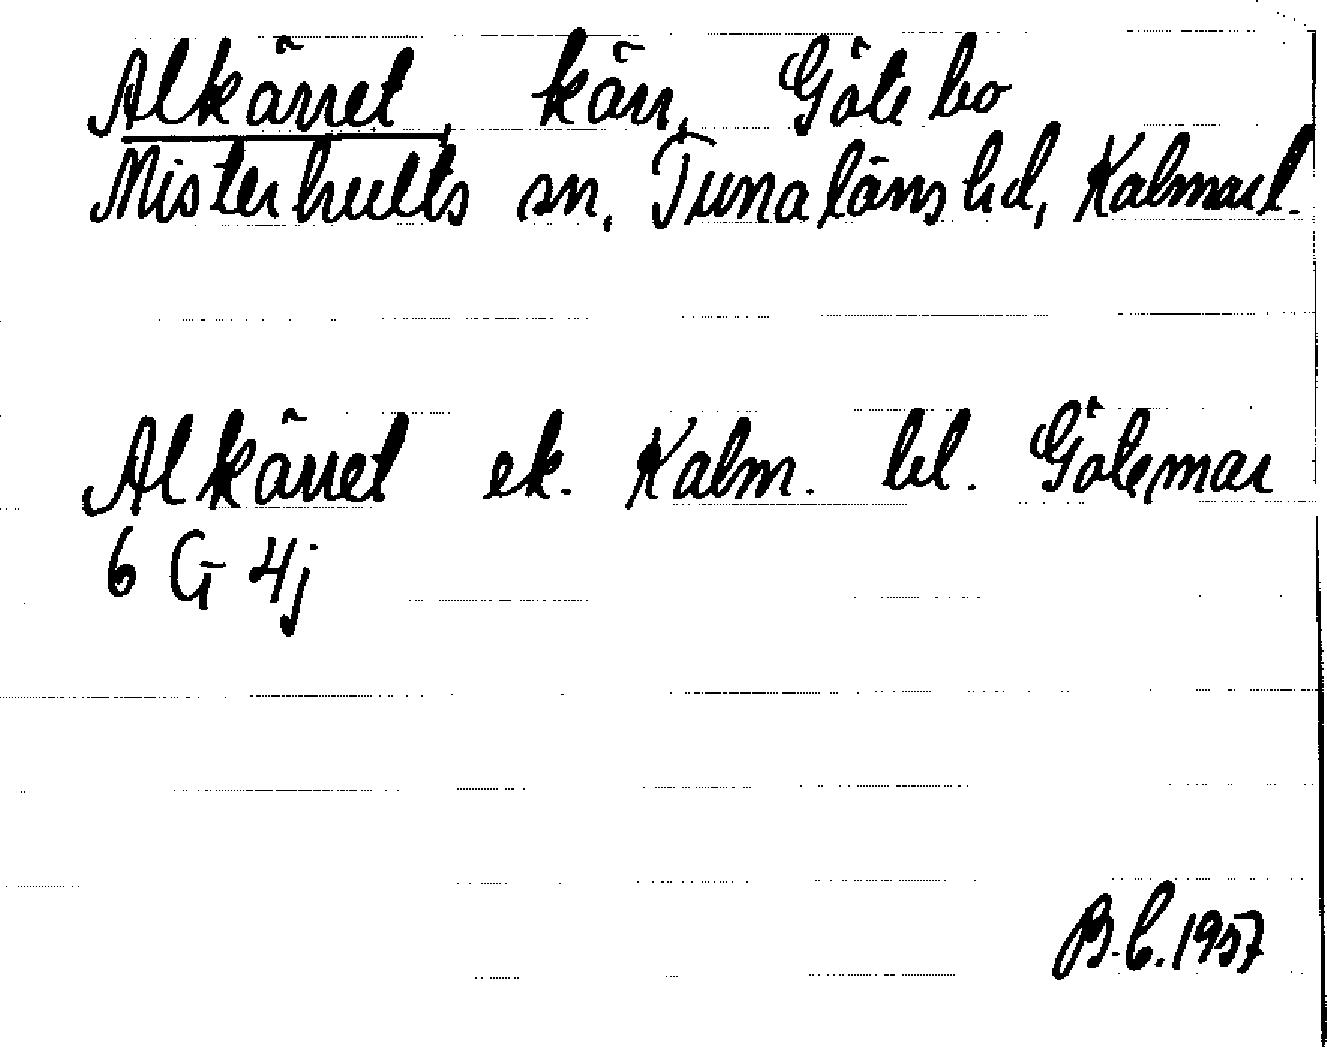 Alkärret, kärr, Götebo
Misterhults sn, Tunaläns hd, Kalmar l.
Alkärret ek. Kalm. bl. Götemar
6 G 4j
B.C. 1957